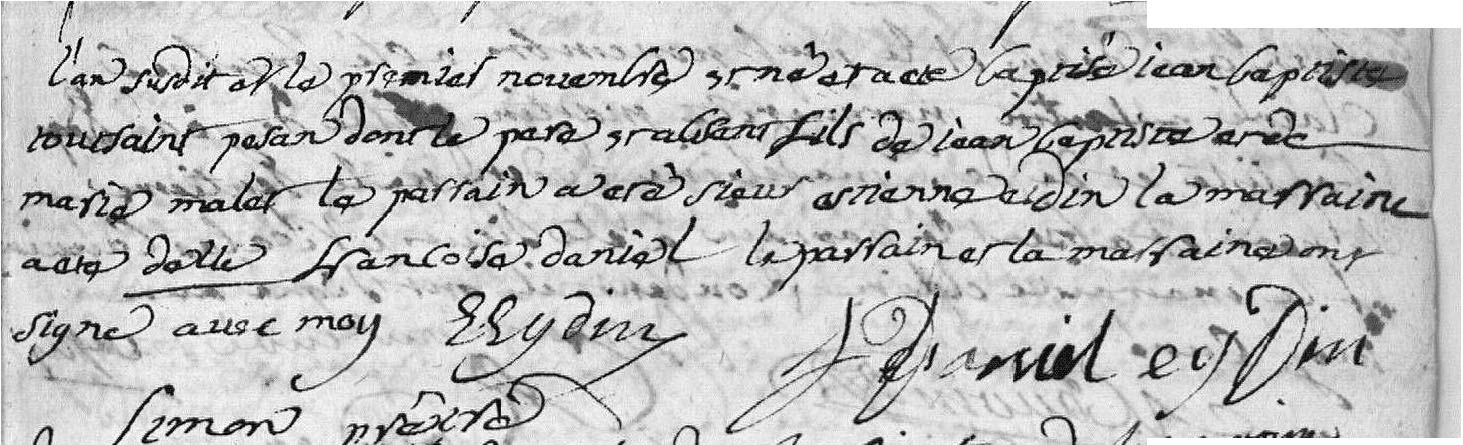 l'an susdit et le premier novembre est né et a ete baptisé iean baptiste
toussaint pesan dont le pere est absent fils de iean baptiste et de
marie malet le parrain a esté sieur estienne eidin la marraine
a ete delle francoise daniel le parrain et la marraine ont
signé avec moy E Eydin f Daniel eydin
Simon prêtre